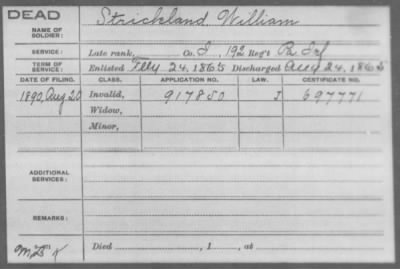 DEAD
NAME OF SOLDIER: Strickland, William
SERVICE: Late rank, Co. I, 192 Reg't Pa Inf
TERM OF SERVICE: Enlisted Feby 24, 1865 Discharged Aug 24, 1865
DATE OF FILING. CLASS. APPLICATION NO. LAW. CERTIFICATE NO.
1890, Aug 20 Invalid, 917850 J 697771
Widow,
Minor,
ADDITIONAL SERVICES:
REMARKS:
Died , 1 , at